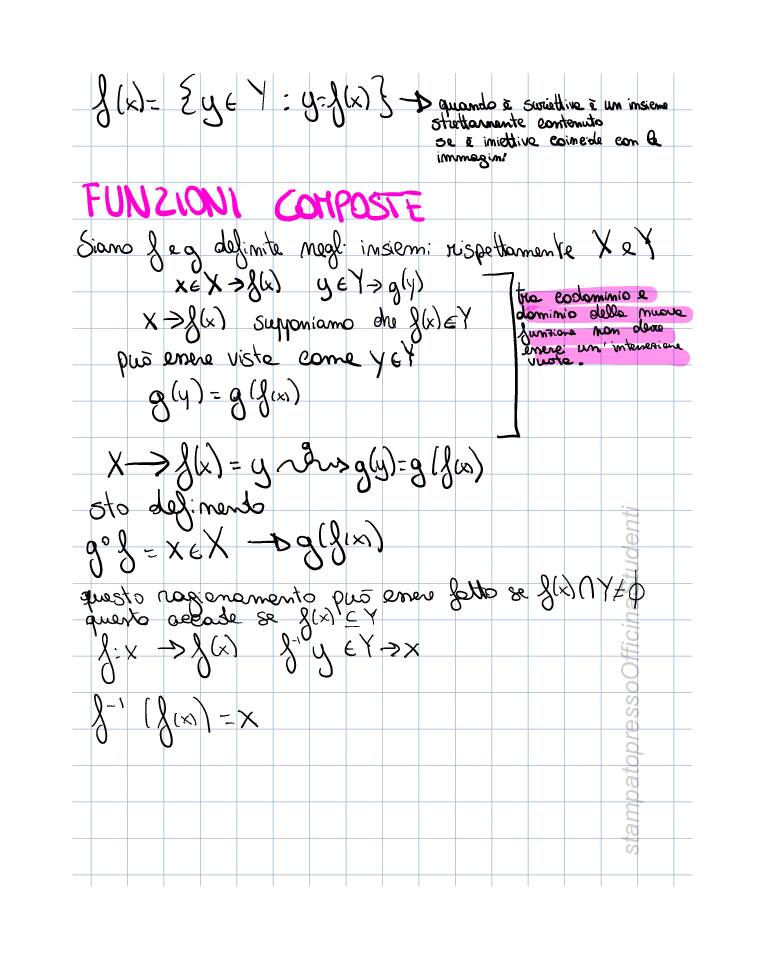 f(x) = {y ∈ Y : y = f(x)} → quando è suriettiva è un insieme
strettamente contenuto
se è iniettiva coincide con le
immagini
FUNZIONI COMPOSTE
Siano f e g definite negli insiemi rispettamente X e Y
x ∈ X → f(x) y ∈ Y → g(y)
x → f(x) supponiamo che f(x) ∈ Y
può essere vista come y ∈ Y
g(y) = g(f(x))
tra codominio e
dominio della nuova
funzione non deve
esserci un'intersezione
vuota.
X → f(x) = y g → g(y) = g(f(x))
sto definento
g°f = x ∈ X → g(f(x))
questo ragionamento può essere fatto se f(x) ∩ Y ≠ ϕ
questo accade se f(x) ⊆ Y
f: x → f(x) f⁻¹ y ∈ Y → x
f⁻¹ (f(x)) = x
stampatopressoOfficinaStudenti